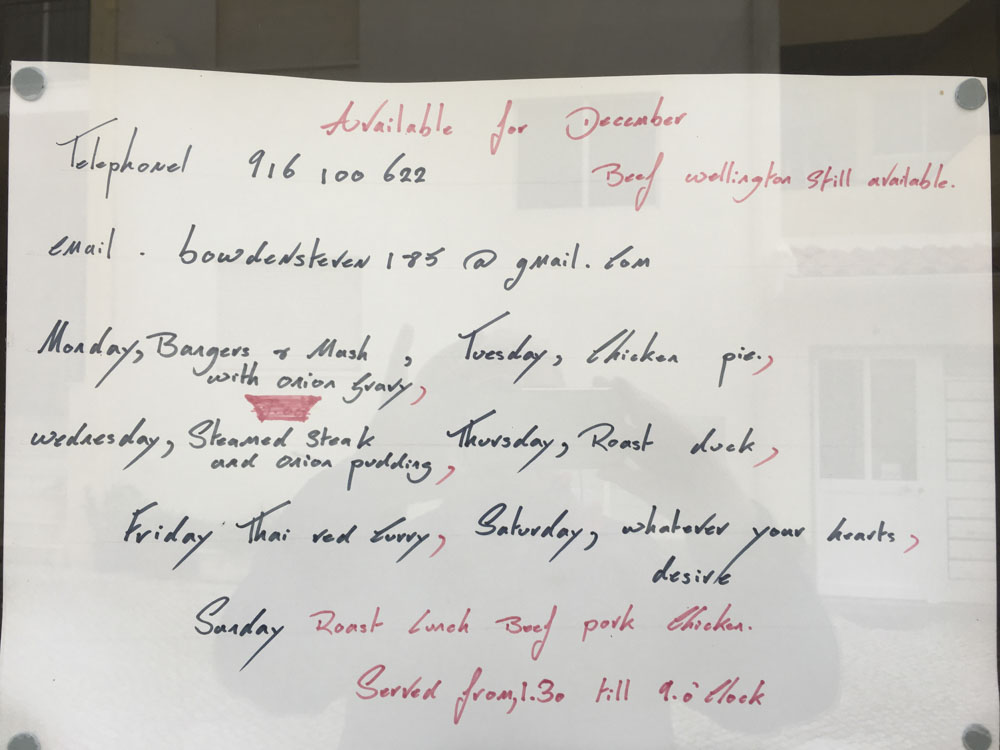 Available for December
Telephonel 916 100 622
Beef wellington still available.
email . bowdensteven185@gmail.com
Monday, Bangers & Mash , Tuesday, Chicken pie.,
with onion Gravy,
wednesday, Steamed Steak Thursday, Roast duck,
and onion pudding,
Friday Thai red Curry, Saturday, whatever your hearts,
desire
Sunday Roast Lunch Beef pork Chicken.
Served from, 1.30 till 9.o'Clock